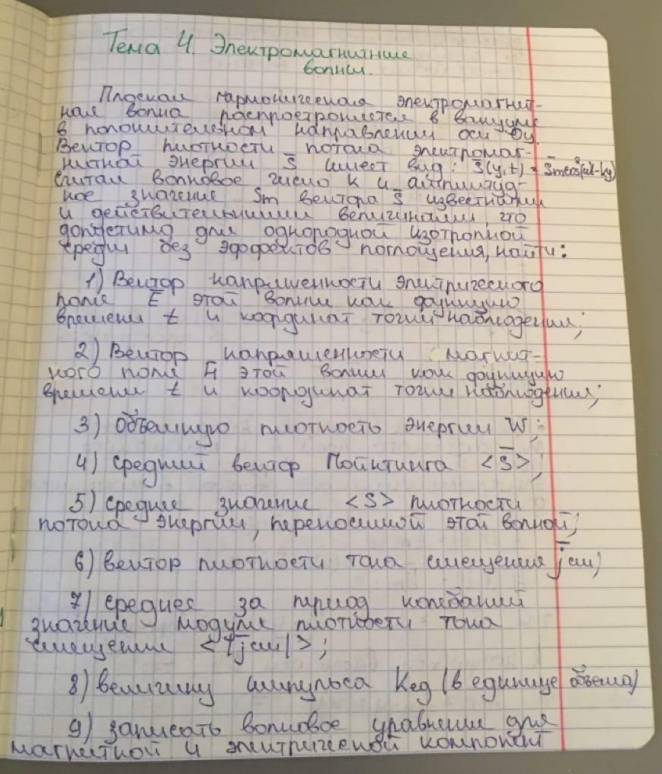 Тема 4. Электромагнитные
волны.
Плоская гармоническая электромагнит-
ная волна распространяется в вакууме
в положительном направлении оси Oy.
Вектор плотности потока электромаг-
нитной энергии S̄ имеет вид: S̄(y,t) = S̄mcos²(ωt-ky)
Считая волновое число k и амплитуд-
ное значение Sm вектора S̄ известными
и действительными величинами, что
допустимо для однородной изотропной
среды без эффектов поглощения, найти:
1) Вектор напряженности электрического
поля Ē этой волны как функцию
времени t и координат точки наблюдения;
2) Вектор напряженности магнит-
ного поля H̄ этой волны как функцию
времени t и координат точки наблюдения;
3) Объемную плотность энергии W;
4) Средний вектор Пойнтинга <S̄>;
5) Среднее значение <S> плотности
потока энергии, переносимой этой волной;
6) вектор плотности тока смещения j̄см;
7) среднее за период колебаний
значение модуля плотности тока
смещения <|j̄см|>;
8) величину импульса Kед (в единице объема)
9) записать волновое уравнение для
магнитной и электрической компонент